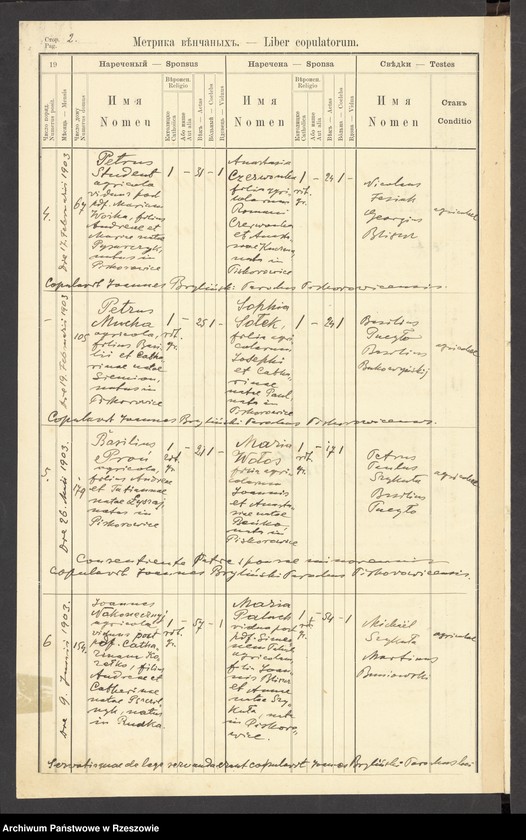 Стор. Pag. 2.
Метрика вѣнчаныхъ. — Liber copulatorum.
19
Нареченый — Sponsus
Наречена — Sponsa
Свѣдки — Testes
Число поряд. Numerus posit.
Мѣсяць — Mensis
Число дому Numerus domus
Имя
Nomen
Вѣроисп. Religio
Католицке Catholica
Або инше Aut alia
Вѣкъ — Aetas
Вдовый — Viduus
Имя
Nomen
Вѣроисп. Religio
Католицке Catholica
Або инше Aut alia
Вѣкъ — Aetas
Вдова — Vidua
Имя
Nomen
Станъ
Conditio
4.
Die 17. Februarii 1903
67
Petrus
Student
agricola
viduus post
pdf. Mariam
Wojtko, filius
Andreae et
Mariae natae
natus in
Piskorowice
1 - 31 - 1
Anastasia
Czerwonka
filia agri-
colarum
Romani
Czerwonka
et Anasta-
siae
nata in
Piskorowice
1 rit. gr. - 24 1 -
Nicolaus
Fesiak
Georgius
agricolae
Copulavit Joannes Bryliński Parochus Piskorovicensis.
Die 19. Februarii 1903
105
Petrus
Mucha
agricola,
filius Basi-
lii et Catha-
rinae natae
Siemion,
natus in
Piskorowice
1 rit. gr. - 25 1 -
Sophia
Sołek,
filia agri-
colarum
Josephi
et Catha-
rinae
natae
nata in
Piskorowice
1 - 24 1
Basilius
Pucyło
Basilius
agricolae
Copulavit Joannes Bryliński Parochus Piskorovicensis.
5
Die 26. Maii 1903.
179
Basilius
agricola,
filius Andreae
et Tatiannae
natae
natus in
Piskorowice
1 rit. gr. - 21 1 -
Maria
Wołos
filia agri-
colarum
Joannis
et Anasta-
siae natae
nata in
Piskorowice
1 rit. gr. - 17 1
Petrus
Szykuła
Basilius
Pucyło
agricolae
Consentiente Patre sponsae minorennis
copulavit Joannes Bryliński Parochus Piskorovicensis.
6
Die 9. Junii 1903.
154
Joannes
Nakonecznyj
agricola
viduus post
pdf. Catha-
rinam
filius
Andreae et
Catharinae
natae
natus
in Rudka.
1 rit. gr. - 57 - 1
Maria
Paluch
vidua post
pdf. Simeo-
nem
agricolam
filia Joan-
nis
et Annae
natae Szy-
kuła, nata
in Piskoro-
wice.
1 rit. gr. - 54 - 1
Michael
Szykuła
Martinus
Baniowski
agricolae
Servatis quae de lege servanda erant copulavit Joannes Bryliński Parochus
Archiwum Państwowe w Rzeszowie